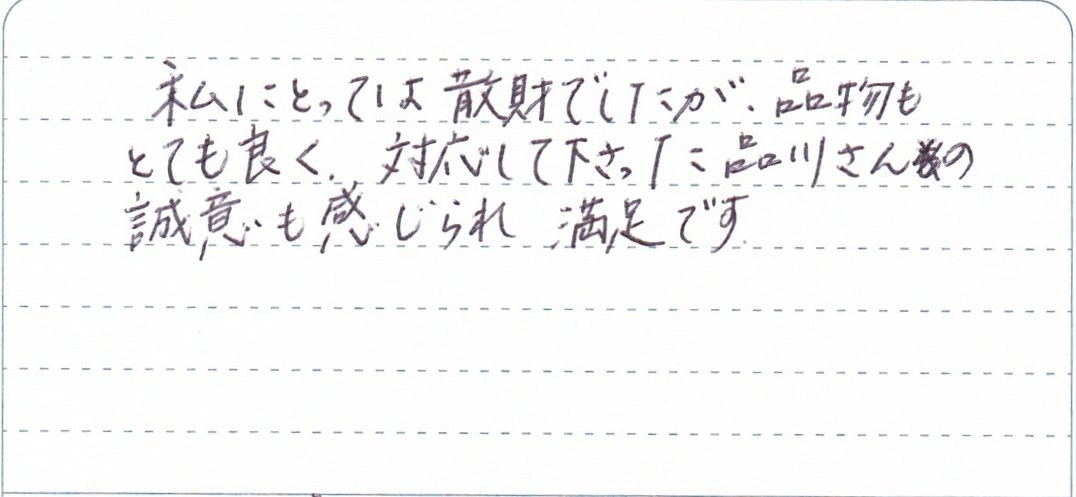 私にとっては散財でしたが、品物も
とても良く、対応して下さった品川さんの
誠意も感じられ 満足です